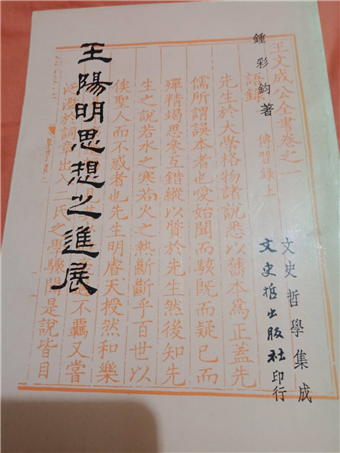 王陽明思想之進展
鍾彩鈞著
文史哲學集成
文史哲出版社印行
王文成公全書卷之一
語錄 傳習錄上
先生於大學格物諸說悉以舊本為正蓋先
儒所謂誤本者也愛始聞而駭既而疑已而
殫精竭思參互錯縱以質於先生然後知先
生之說若水之寒若火之熱斷斷乎百世以
俟聖人而不惑者也先生明睿天授然和樂
不羈又嘗
氾濫於詞章出
二氏之學驟
是說皆目